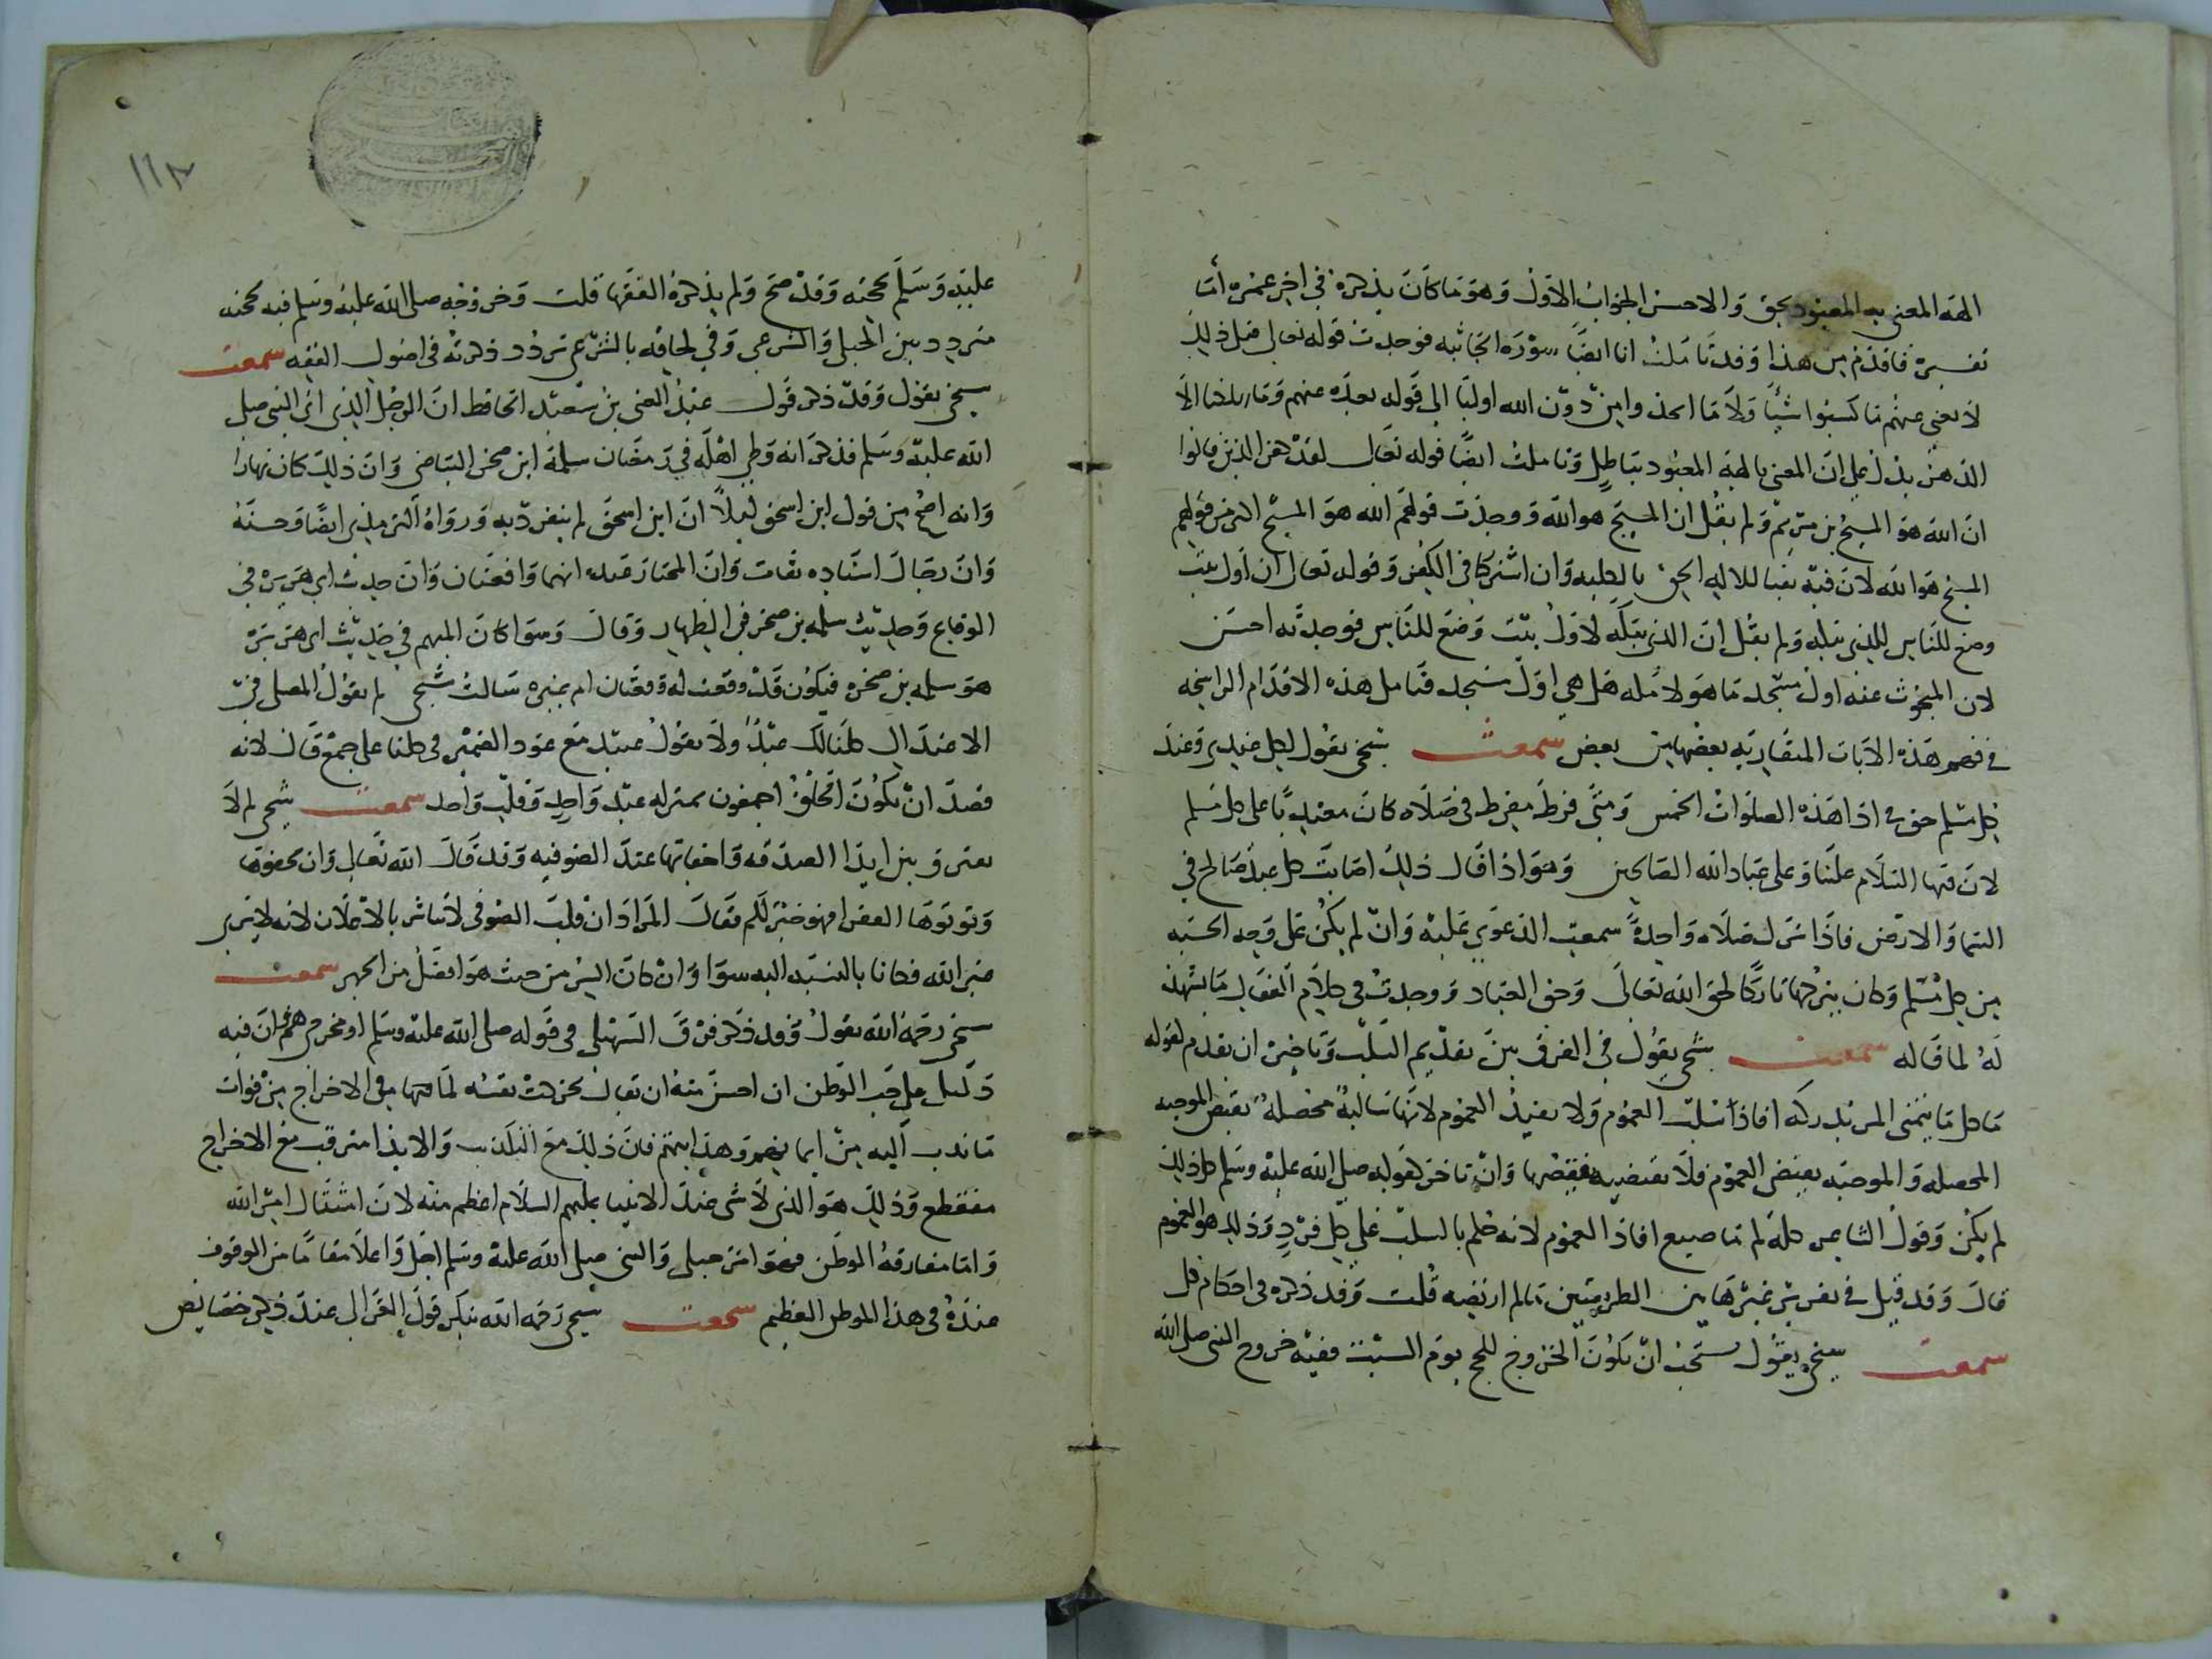 الهة المعنى به المعبود بحق والاحسن الجواب الاول وهو ما كان يذكره في اخر عمره اما
تفسيره فاقدم من هذا وقد تاملت انا ايضا سورة الجاثيه فوجدت قوله تعالى قبل ذلك
لا يغني عنهم ما كسبوا شيئا ولا ما اتخذوا من دون الله اوليا الى قوله بعده عنهم وما يهلكنا الا
الدهر يدل على ان المعنى بالهة المعبود بباطل وتاملت ايضا قوله تعالى لقد كفر الذين قالوا
ان الله هو المسيح بن مريم ولم يقل ان المسيح هو الله ووجدت قولهم الله هو المسيح اكفر من قولهم
المسيح هو الله لان فيه نفيا للاله الحق بالكليه وان اشتركا في الكفر وقوله تعالى ان اول بيت
وضع للناس للذي ببكه ولم يقل ان الذي ببكه لاول بيت وضع للناس فوجدته احسن
لان المبحوث عنه اول مسجد ما هو لا مكه هل هي اول مسجد فتامل هذه الاقدام الراسخه
في فهم هذه الايات المتقاربه بعضها من بعض سمعت شيخي يقول لكل عندي وعند
كل مسلم حق في اداهذه الصلوات الخمس ومتى فرط مفرط في صلاه كان معتديا على كل مسلم
لان فيها السلام علينا وعلى عباد الله الصالحين وهو اذا قال ذلك اصابت كل عبد صالح في
السما والارض فاذا ترك صلاه واحدة سمعت الدعوى عليه وان لم يكن على وجه الحسبه
من كل مسلم وكان بتركها تاركا لحق الله تعالى وحق العباد ووجدت في كلام القفال ما يشهد
له لما قاله سمعت شيخي يقول في الفرق بين تقديم السلب وتاخيره ان تقدم لقوله
ما كل ما يتمنى المرء يدركه افاد سلب العموم ولا يفيد العموم لانها سالبة محصلة نقيض الموجبه
المحصله والموجبه نقيض العموم فلا تقتضيه نقيضها وان تاخر كقوله صلى الله عليه وسلم كل ذلك
لم يكن وقول الشاعر كله لم اصنع افاد العموم لانه حكم بالسلب على كل فرد وذلك هو العموم
قال وقد قيل في تقرير غيرها بين الطريقتين مالم ارتضيه قلت وقد ذكره في احكام كل
سمعت شيخي يقول يستحب ان يكون الخروج للحج يوم السبت ففيه خروج النبي صلى الله
عليه وسلم بحجته وقد صح ولم يذكره الفقها قلت وخروجه صلى الله عليه وسلم فيه بحجته
متردد بين الجبلي والشرعي وفي لحاقه بالشرعي تردد ذكرته في اصول الفقه سمعت
شيخي يقول وقد ذكر قول عبد الغني بن سعيد الحافظ ان الرجل الذي اتى النبي صلى
الله عليه وسلم فذكر انه وطي اهله في رمضان سلمة ابن صخر البياضي وان ذلك كان نهارا
وانه اصح من قول ابن اسحق ليلا ان ابن اسحق لم ينفرد به ورواه الترمذي ايضا وحسنه
وان رجال اسناده ثقات وان المختار عنده انهما واقعتان وان حديث ابي هريرة في
الوقاع وحديث سلمه بن صخر في الظهار وقال وسوا كان المبهم في حديث ابي هريرة
هو سلمه بن صخره فيكون قد وقعت له وقعتان ام غيره سالت شيخي لم يقول المصلى في
الاعتدال كلنا لك عبد ولا يقول عبيد مع عود الضمير في كلنا على جمع قال لانه
قصد ان يكون الخلق اجمعون بمنزله عبد واحد وقلب واحد سمعت شيخي لم لا
يعتري وبين ابدا الصدقه واخفايها عند الصوفيه وقد قال الله تعالى وان تخفوها
وتوتوها الفقرا فهو خير لكم فقال المراد ان قلب الصوفي لا يتاثر بالاعلان لانه لا يرى
غير الله فكانا بالنسبه اليه سوا وان كان السر من حيث هو افضل من الجهر سمعت
شيخي رحمه الله يقول وقد ذكر فرق السهيلي في قوله صلى الله عليه وسلم اومخرجي هم ان فيه
دليل على حب الوطن ان احسن منه ان يقال تحركت نفسه لما فيها في الاخراج من فوات
ما ندب اليه من ايمانهم وهدايتهم فان ذلك مع التكذيب والايذا مترقب مع الاخراج
منقطع وذلك هو الذي لا شي عند الانبيا عليهم السلام اعظم منه لان امتثال امر الله
واما مفارقة الموطن فهو امر جبلي والنبي صلى الله عليه وسلم اجل واعلا مقاما من الوقوف
عنده في هذا الموطن العظيم سمعت شيخي رحمه الله ينكر قول الغزالي عند ذكر خصايص